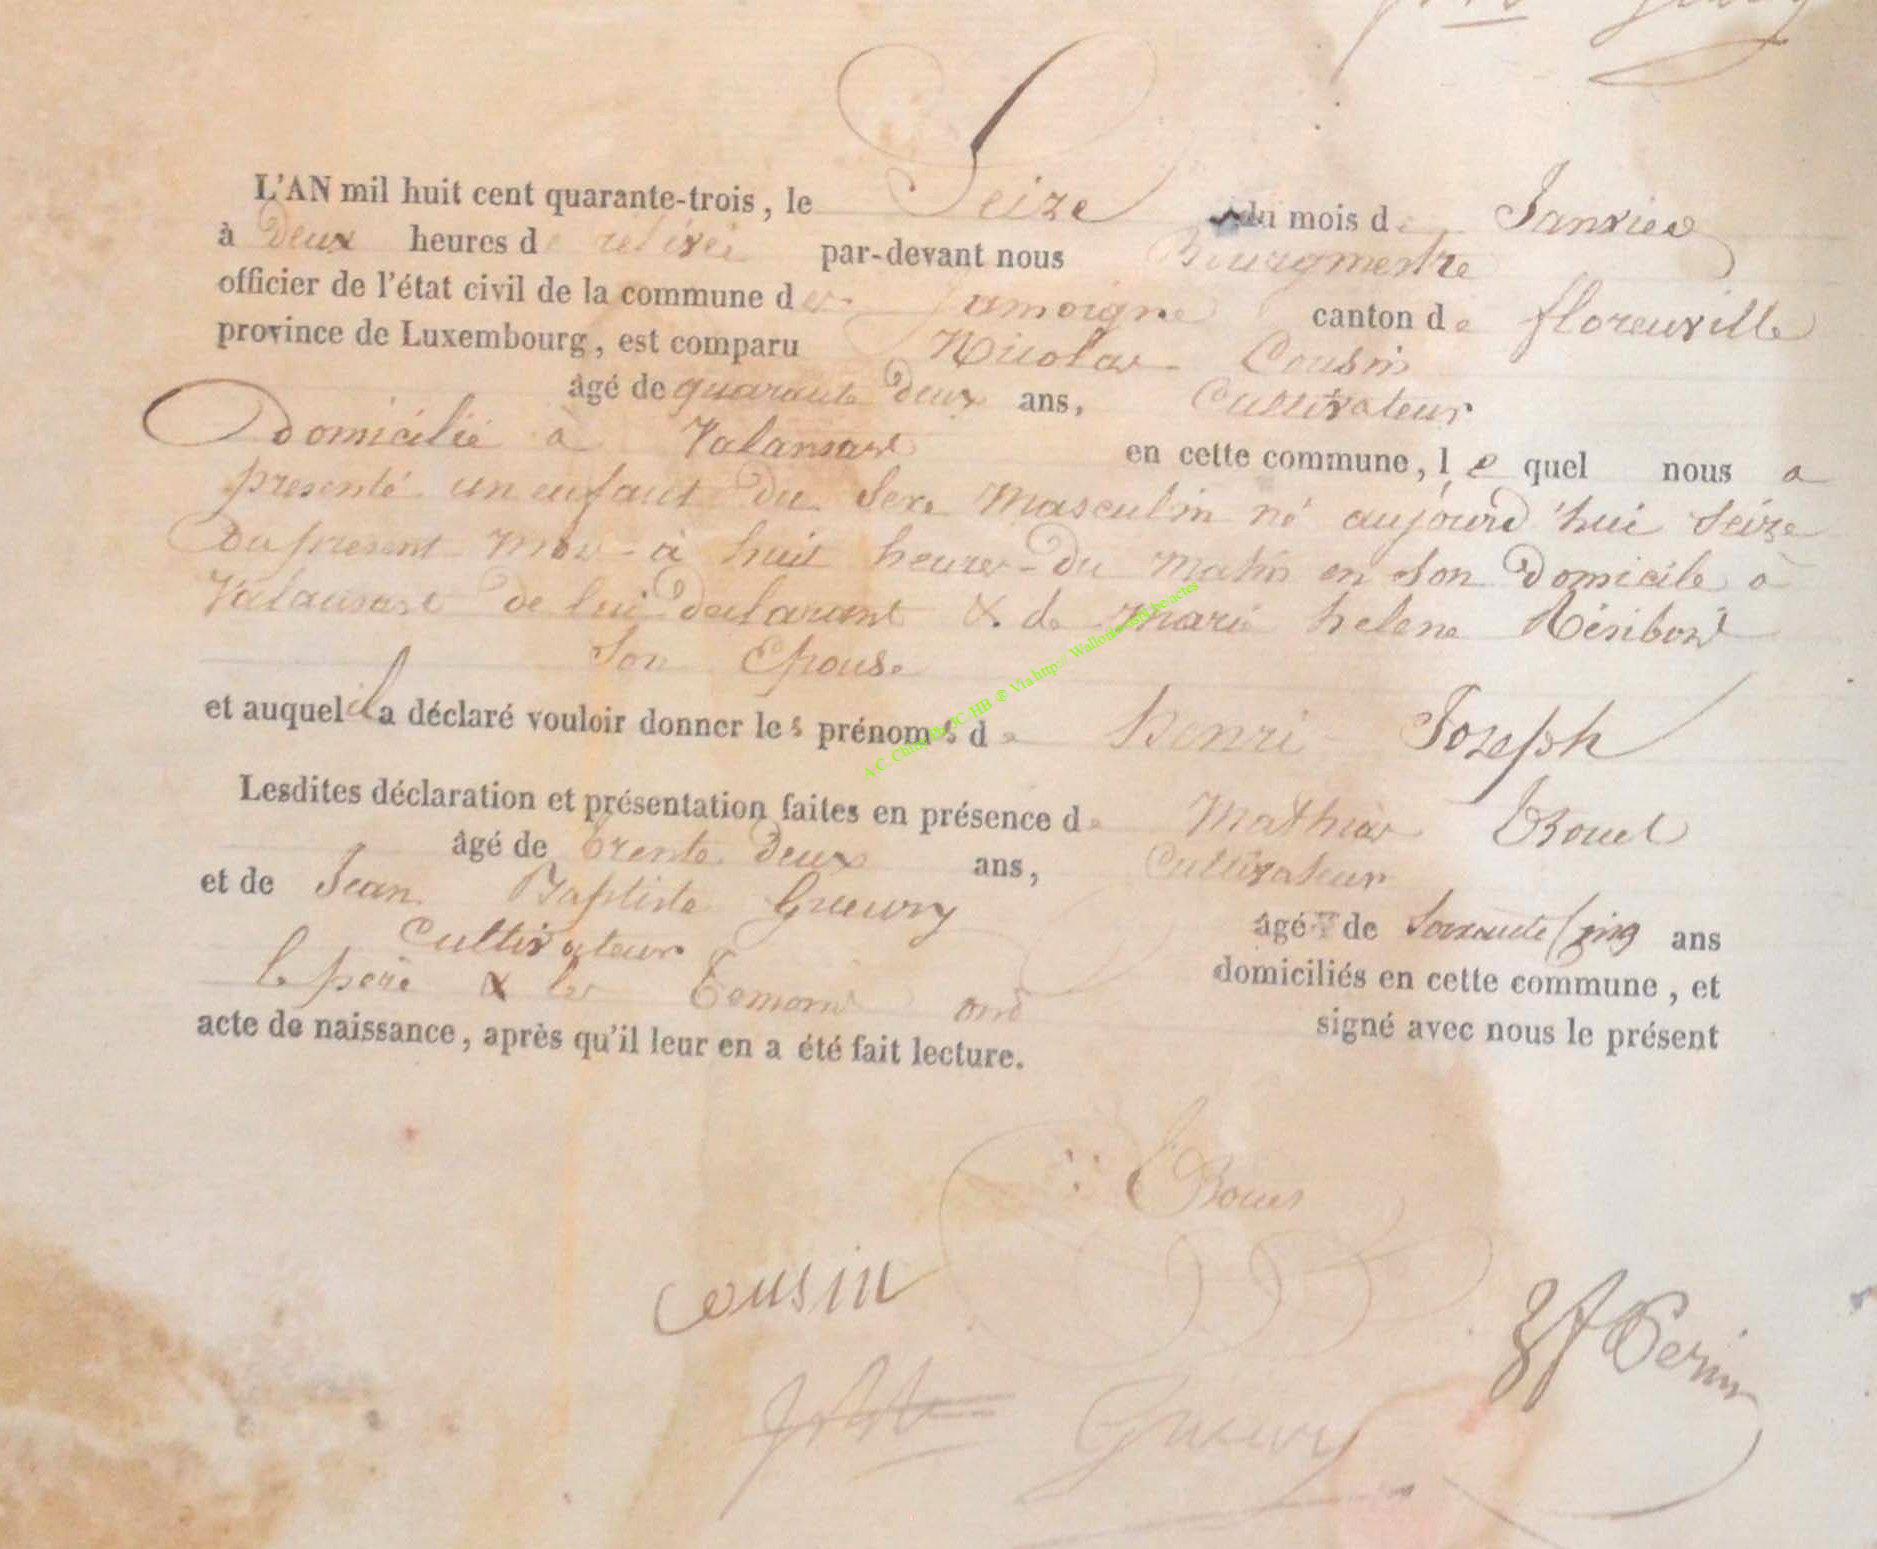 L'AN mil huit cent quarante-trois, le Seize du mois de Janvier
à Deux heures de relevée par-devant nous Bourgmestre
officier de l'état civil de la commune de Jamoigne canton de florenville
province de Luxembourg, est comparu Nicolas Cousin
âgé de quarante Deux ans, Cultivateur
Domicilié à Valansart en cette commune, le quel nous a
presenté un enfant du Sexe Masculin né aujourd'hui Seize
Du present Mois à huit heures Du Matin en Son Domicile à
Valansart de lui Declarant & de Marie helene
Son Epouse
et auquel il a déclaré vouloir donner les prénoms de henri Joseph
Lesdites déclaration et présentation faites en présence de Mathias
âgé de trente Deux ans, Cultivateur
et de Jean Baptiste Gueury âgé de Soixante Cinq ans
Cultivateur domiciliés en cette commune, et
le père & les Temoins ont signé avec nous le présent
acte de naissance, après qu'il leur en a été fait lecture.
cousin
Perin
Gueury
A.C. HB ® Via http:// Wallonie actes